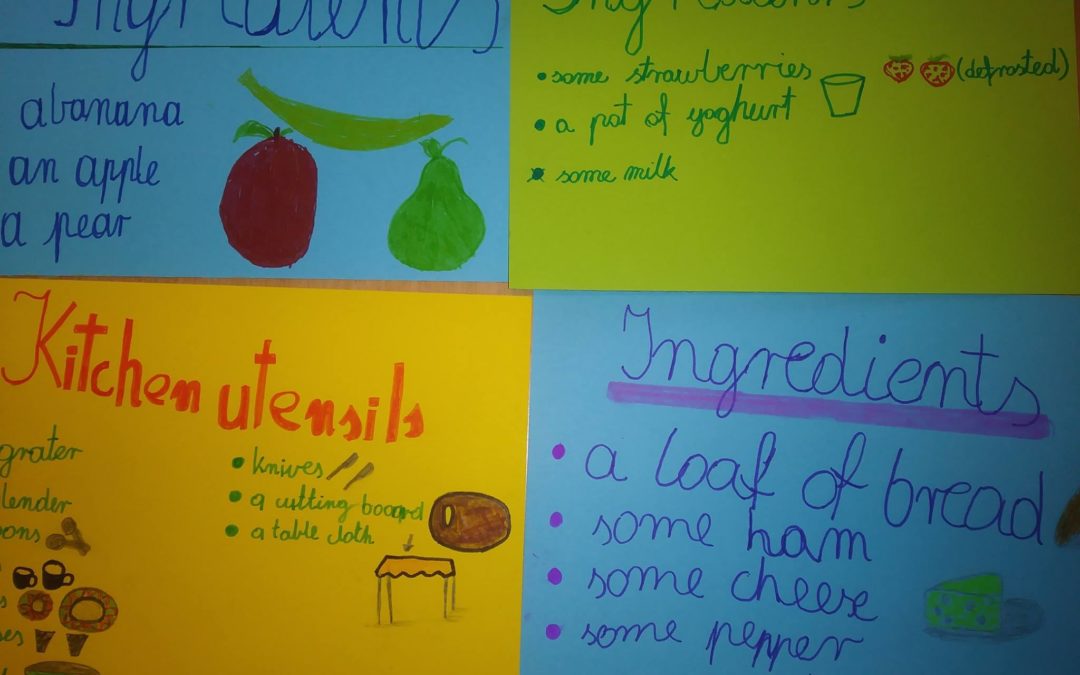 Ingredients
a banana
an apple
a pear
Ingredients
• some strawberries (defrosted)
• a pot of yoghurt
• some milk
Kitchen utensils
grater
lender
ons
s
ses
• knives
• a cutting booard
• a table cloth
Ingredients
• a loaf of bread
• some ham
• some cheese
• some pepper